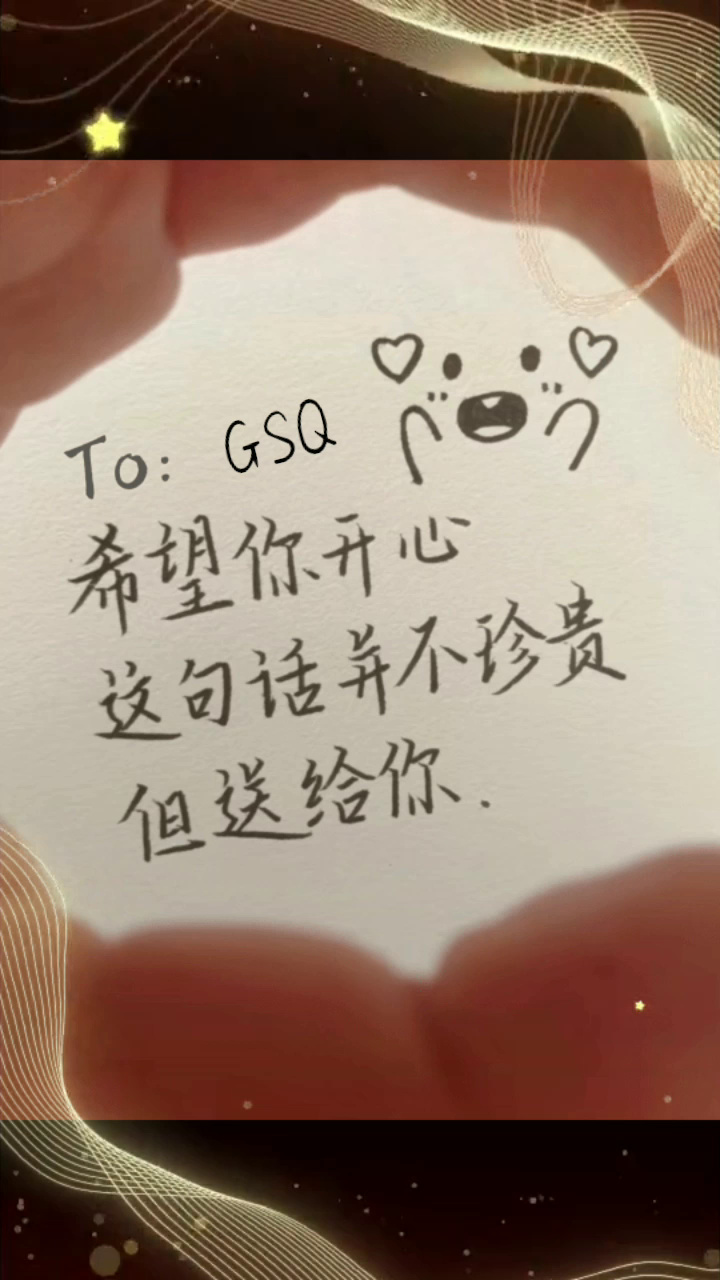 To: GSQ
希望你开心
这句话并不珍贵
但送给你.